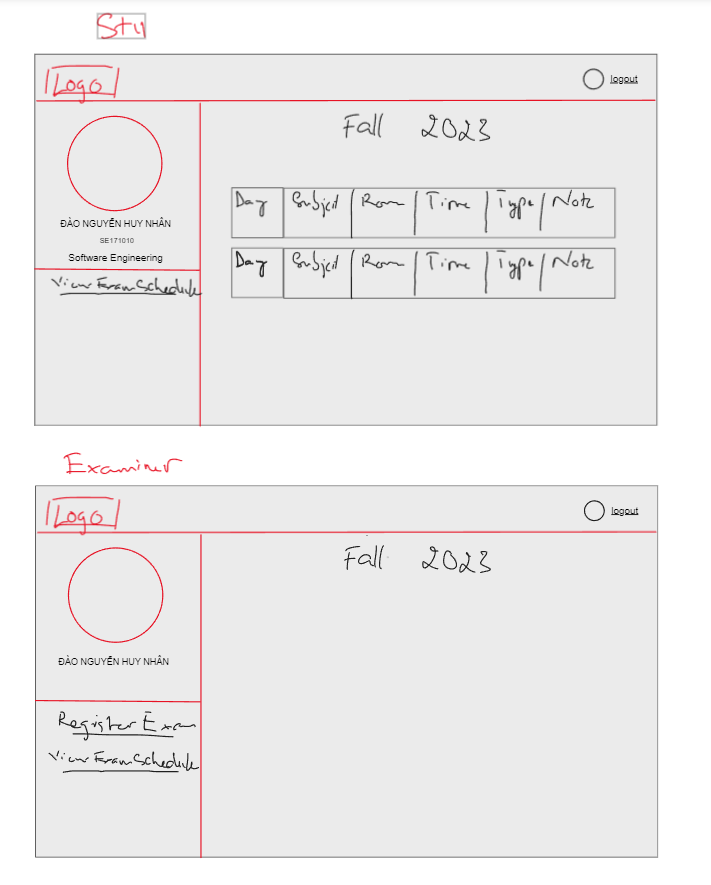 Stu
Logo
logout
Fall 2023
ĐÀO NGUYỄN HUY NHÂN
SE171010
Software Engineering
View Exam Schedule
Day Subject Room Time Type Note
Day Subject Room Time Type Note
Examiner
Logo
logout
Fall 2023
ĐÀO NGUYỄN HUY NHÂN
Register Exam
View Exam Schedule